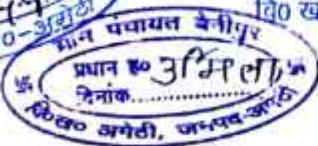 ग्राम पंचायत बेनीपुर
प्रधान ह० उर्मिला
दिनांक..............
वि०ख० अमेठी, जनपद-अमेठी